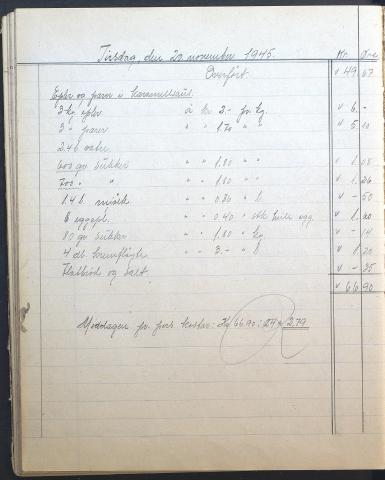 Tirsdag, den 20 november 1945. Kr. Øre
Overført v 49.67
Epler og pærer i karamellsaus.
3 kg epler à kr 2.- pr kg. v 6.-
3 " pærer " " 1.70 " " v 5.10
2.4 l vann
600 gr sukker " " 1.80 " " v 1.08
700 " " " " 1.80 " " v 1.26
1.4 l. melk " " 0.36 " l v - 50
6 eggepl. " " 0.40 " stk hele egg v 1.20
80 gr sukker " " 1.80 " kg v - 14
4 dl. kremfløyte " " 3.- " l v 1.20
Flatbrød og salt. v - 35
v 66.90
Middagen pr. pers. koster: Kr 66.90 : 24 = 2.79